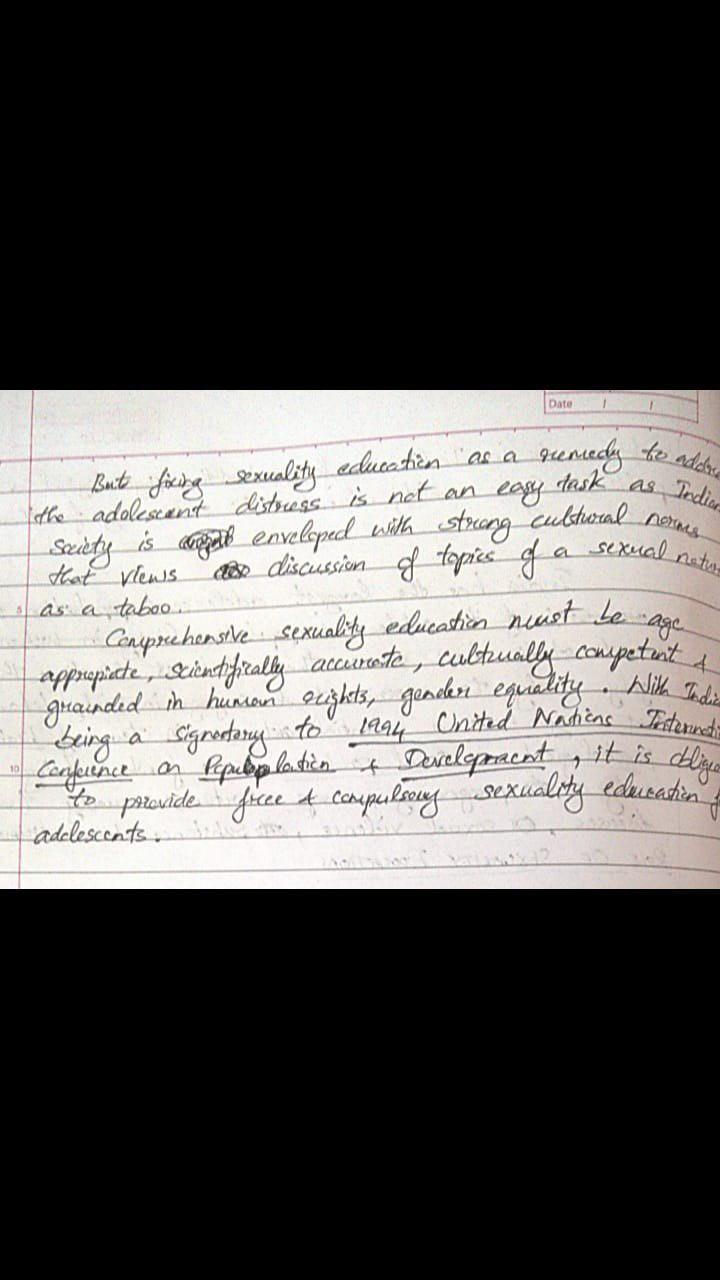 Date / /
But fixing sexuality education as a remedy to addre
the adolescent distress is not an easy task as Indian
Society is enveloped with strong cultural norms
that views discussion of topics of a sexual natur
5 as a taboo.
Comprehensive sexuality education must be age
appropiate, scientifically accurate, culturally competent &
grounded in human rights, gender equality. With India
being a signatory to 1994 United Nations Internati
10 Conference on Population & Development, it is obliga
to provide free & compulsory sexuality education f
adolescents.